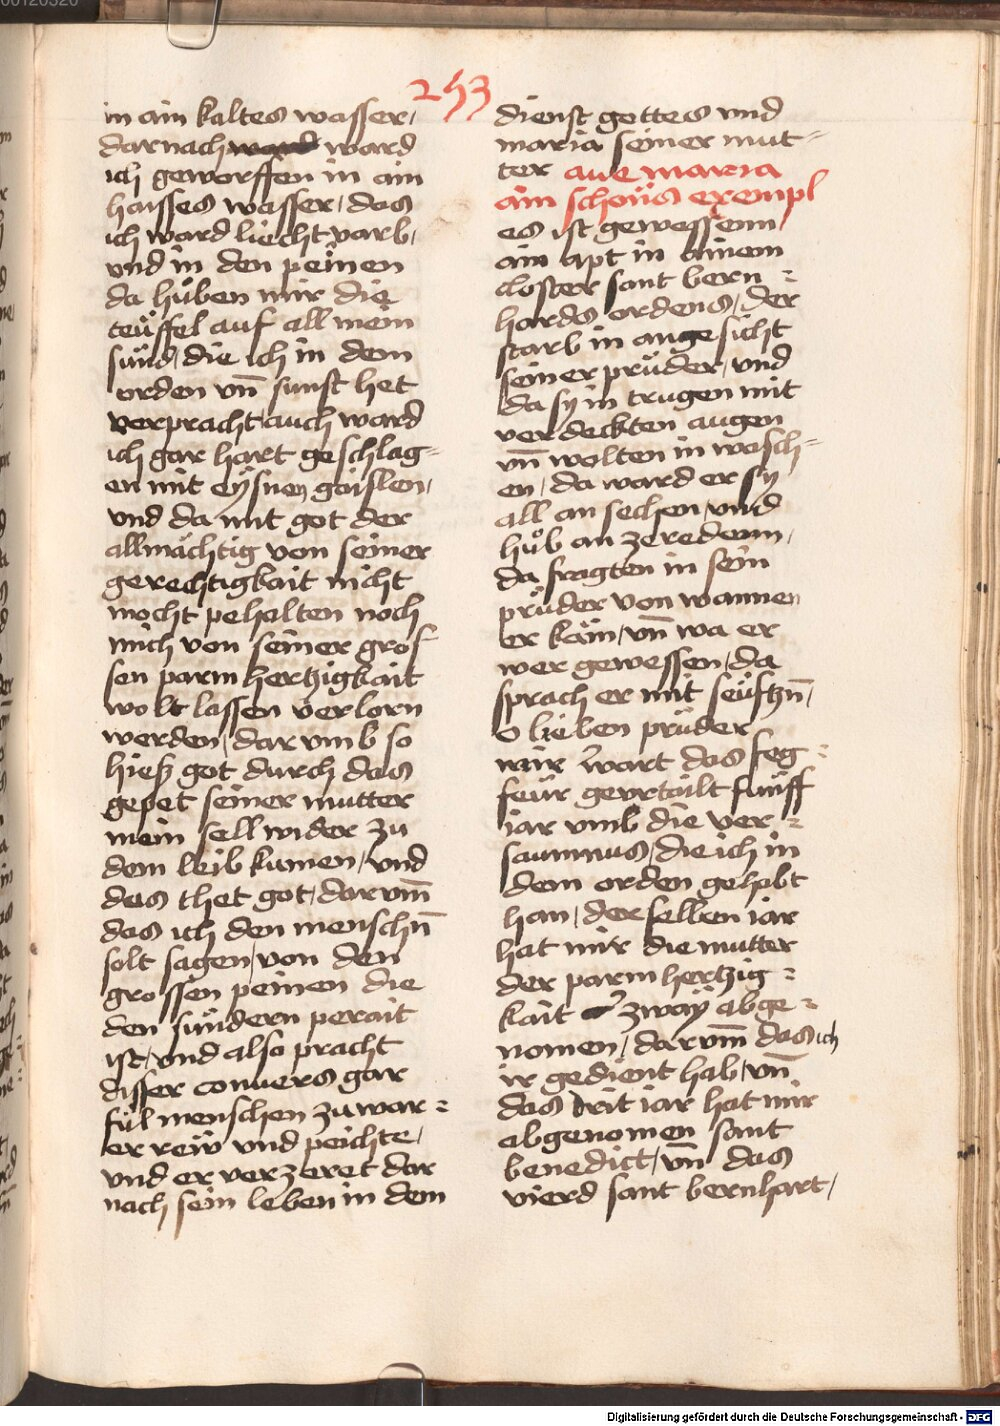 253
in ain kaltes wasser /
darnach ward ward
ich geworffen in ain
haisses wasser / das
ich ward liecht varb /
vnd in den peinen
da hůben mir die
teüffel auf all mein
sünd / die ich in dem
orden vn̄ sunst het
verpracht auch ward
ich gar hart geschlag=
en mit eÿsnen gaislen /
vnd da mit got der
allmächtig von seiner
gerechtigkait nicht
mocht pehalten noch
mich von seiner gros
sen parmhertzigkait
wolt lassen verlorn
werden / dar vmb so
hiesz got durch das
gepet seiner mutter
mein sell wider zu
dem leib kumen / vnd
das thet got / dar vm̄
das ich den menschn̄
solt sagen / von den
grossen peinen die
den sündern perait
ist / vnd also pracht
disser conuers gar
fül menschen zu war=
er rew vnd peichte /
vnd er verzeret dar
nach sein leben in dem
dienst gottes vnd
maria seiner mut=
ter aue maria
ain schöns exempl
es ist gewessenn /
ain apt in ainem
closter sant bern=
hards ordens / der
starb in angesicht
seiner prüder / vnd
da sy in trugen mit
verdeckten augen
vn̄ wolten in wasch=
en / da ward er sy
all an sechen / vnd
hůb an ze redenn /
da fragten in sein
prüder von wannen
er käm / vn̄ wa er
wer gewessen / da
sprach er mit seüftzn̄ /
O lieben prüder
mir wart das feg=
feür geurtailt fünff
iar vmb die ver=
saumnus / die ich in
dem orden gehabt
han / der selben iar
hat mir die mutter
der parmhertzig=
kait zwaÿ abge=
nomen / dar vm̄ das ich
ir gedient hab / vn̄
das drit iar hat mir
abgenomen sant
benedict / vn̄ das
vierd sant bernhart /
Digitalisierung gefördert durch die Deutsche Forschungsgemeinschaft - DFG